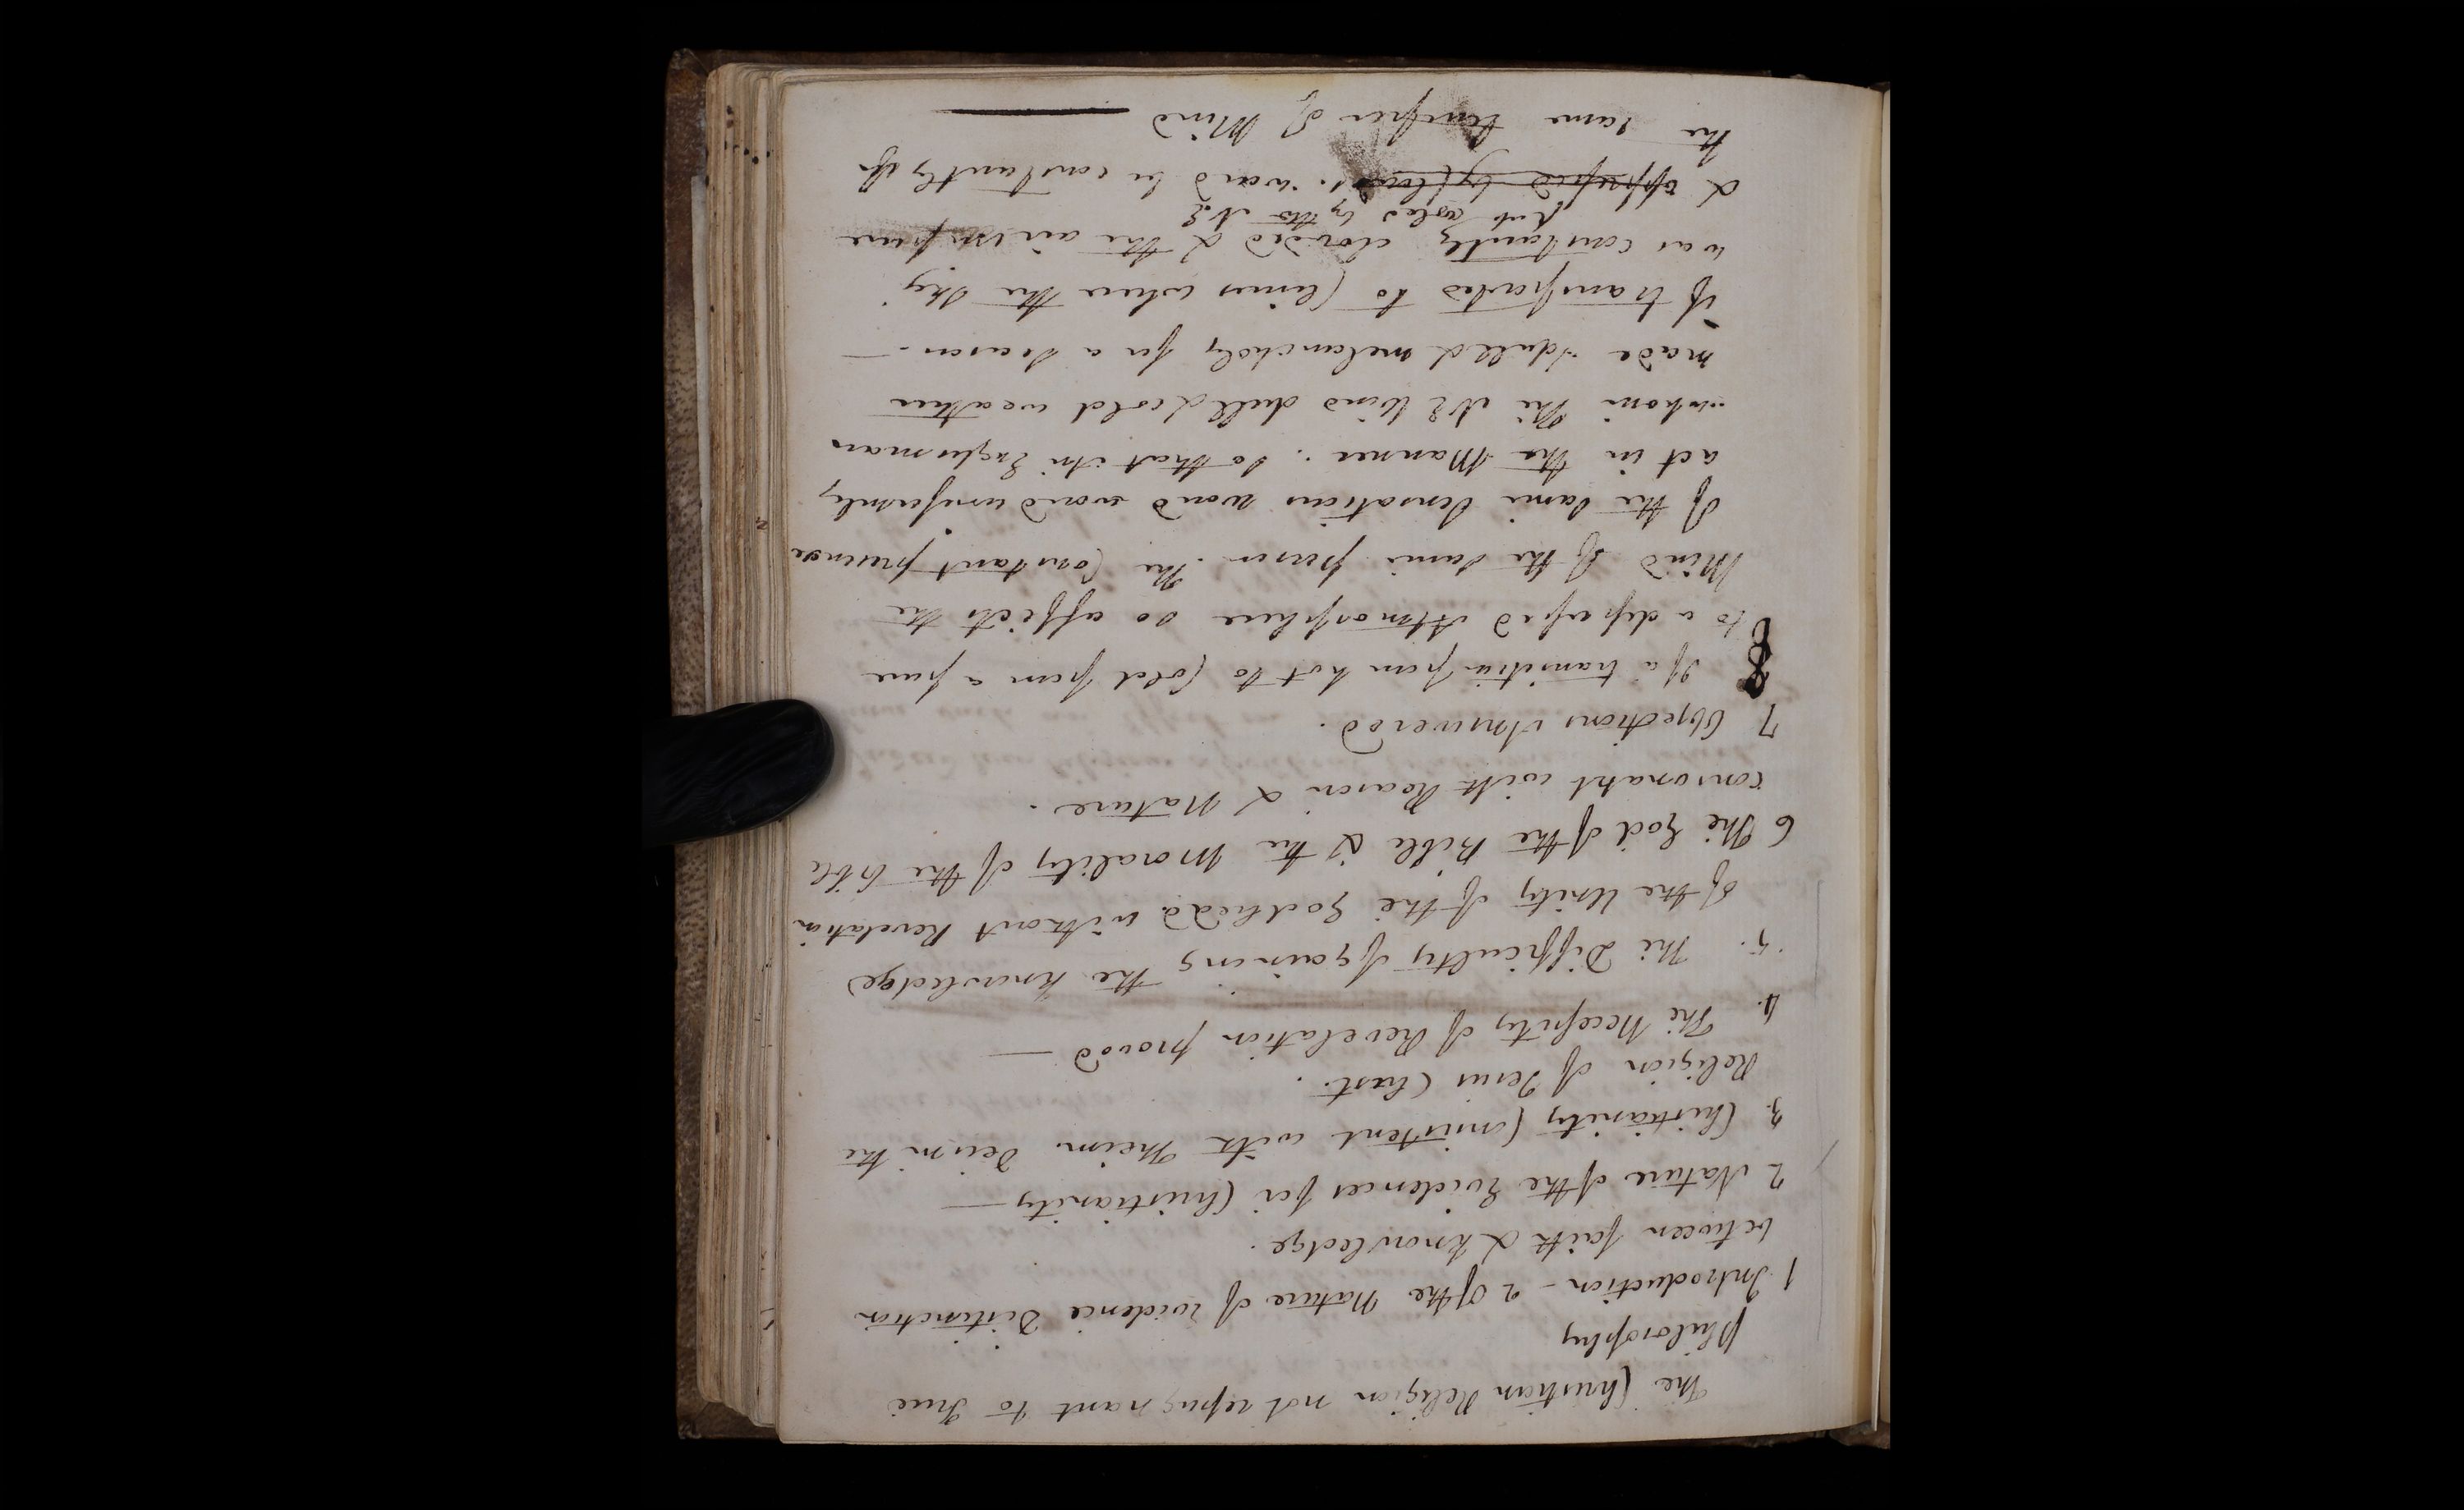 The Christian Religion not repugnant to True
Philosophy
1 Introduction - 2 Of the Nature of evidence Distinction
between faith & knowledge.
2 Nature of the Evidences for Christianity —
3. Christianity Consistent with Theism Deism the
Religion of Jesus Christ.
4. The Necessity of Revelation proved —
5. The Difficulty of gaining the knowledge
of the Unity of the Godhead without Revelation
6 The God of the Bible & the Morality of the bible
consonant with Reason & Nature.
7 Objections Answered.
8 If a transition from hot to Cold from a pure
to a Atmosphere so affects the
Mind of the same person. The Constant presence
of the same Sensations woud woud uniformly
act in the Manner. so that An Englisman
whom the NE Wind dull & cold weather
made dull & melancholy for a Season —
if transported to Climes where the sky
was constantly clouded & the air impure
but cooled by the NE
& oppressed by Clouds. woud be constantly of
the same temper of Mind —